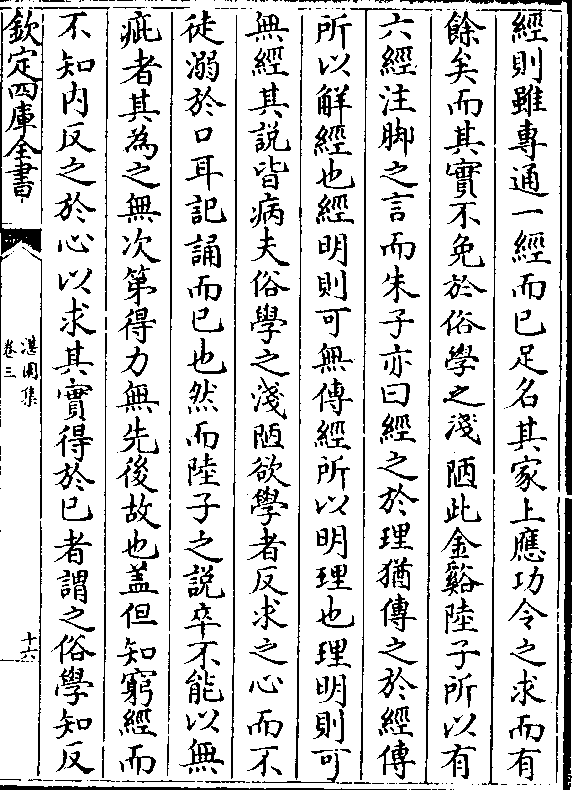 經則雖專通一經而已足名其家上應功令之求而有
餘矣而其實不免於俗學之淺陋此金谿陸子所以有
六經注脚之言而朱子亦曰經之於理猶傳之於經傳
所以解經也經明則可無傳經所以明理也理明則可
無經其說皆病夫俗學之淺陋欲學者反求之心而不
徒溺於口耳記誦而已也然而陸子之說卒不能以無
疵者其為之無次第得力無先後故也蓋但知窮經而
不知内反之於心以求其實得於已者謂之俗學知反
欽定四庫全書
湛園集
卷三
十六